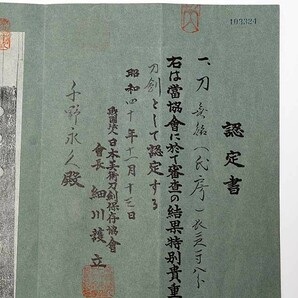 103324
認定書
一、刀 無銘（氏房）長貳尺貳寸八分
右は當協會に於て審査の結果特別貴重
刀劍として認定する
昭和四十年十二月十三日
財團法人日本美術刀劍保存協會
會長 細川護立
千野永人殿